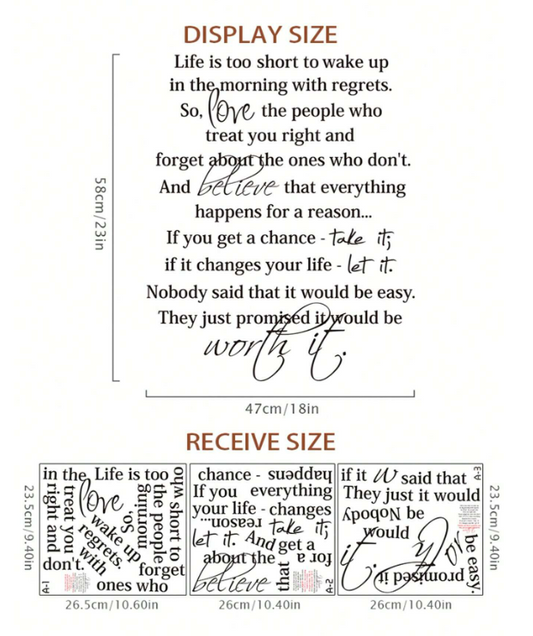 DISPLAY SIZE
Life is too short to wake up
in the morning with regrets.
So, love the people who
treat you right and
forget about the ones who don't.
And believe that everything
happens for a reason...
If you get a chance - take it;
if it changes your life - let it.
Nobody said that it would be easy.
They just promised it would be
worth it.
58cm/23in
47cm/18in
RECEIVE SIZE
in the Life is too
who short to
the people
morning
So,
love
treat you
right and
wake up
regrets.
with
don't.
forget
ones who
A-1
chance - happens
If you everything
your life - changes
reason... take it;
let it. And get a
about the for a
believe
that
A-2
if it W said that
They just it would
Nobody be
would
or
th
it.
promised it
be easy.
A-3
23.5cm/9.40in
26.5cm/10.60in
26cm/10.40in
26cm/10.40in
23.5cm/9.40in